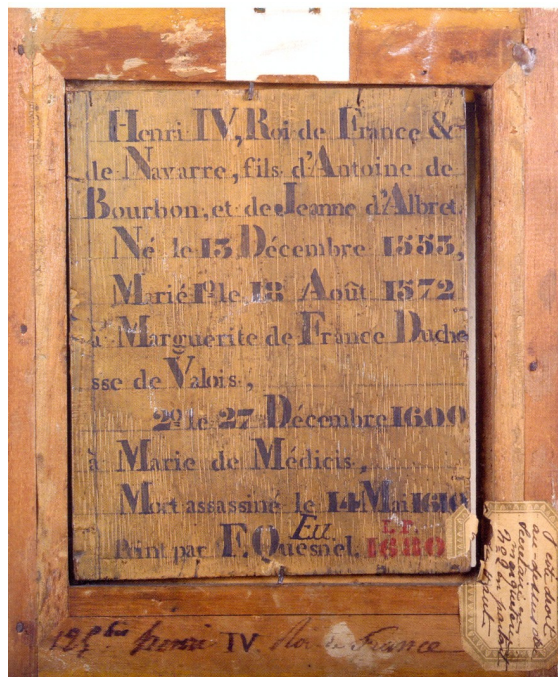 Henri IV, Roi de France &
de Navarre, fils d'Antoine de
Bourbon, et de Jeanne d'Albret.
Né le 13 Décembre 1553,
Marié 1º le 18 Août 1572
à Marguérite de France Duche
sse de Valois,
2º le 27 Décembre 1600
à Marie de Médicis,
Mort assassiné le 14 Mai 1610
Eu.
Peint par F. Quesnel. L.P.
1680
Henri IV Roi de France